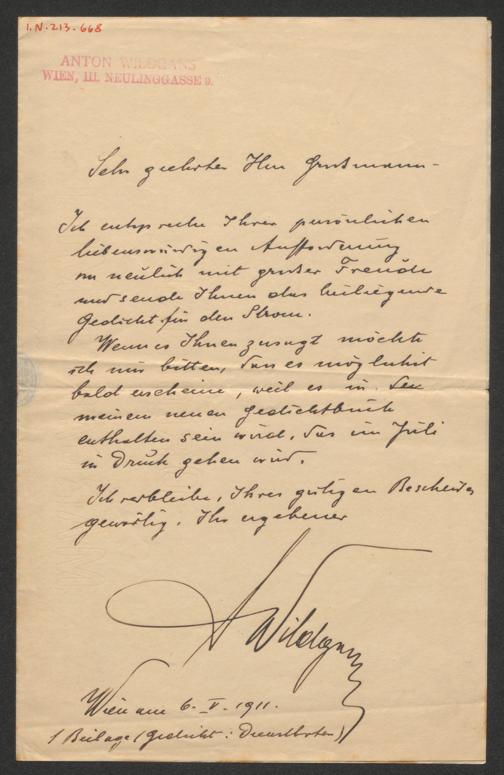 I.N. 213.668
ANTON WILDGANS
WIEN, III. NEULINGGASSE 9.
Sehr geehrter Herr
Ich entspreche Ihrer persönlichen
liebenswürdigen Aufforderung
von neulich mit großer Freude
und sende Ihnen das beiliegende
Gedicht für den Strom.
Wenn es Ihnen zusagt möchte
ich nur bitten, dass es möglichst
bald erscheine, weil es in
meinem neuen Gedichtbuch
enthalten sein wird, das im Juli
in Druck gehen wird.
Ich verbleibe, Ihres gütigen Bescheides
gewärtig, Ihr ergebener
A Wildgans
Wien am 6. V. 1911.
1 Beilage (Gedicht: Dienstboten)